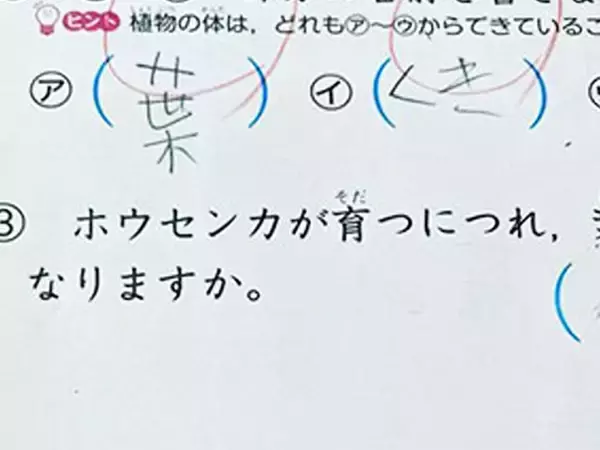 ヒント 植物の体は,どれも㋐〜㋒からできているこ
㋐(葉) ㋑(くき)
③ ホウセンカが育つにつれ,
なりますか。(